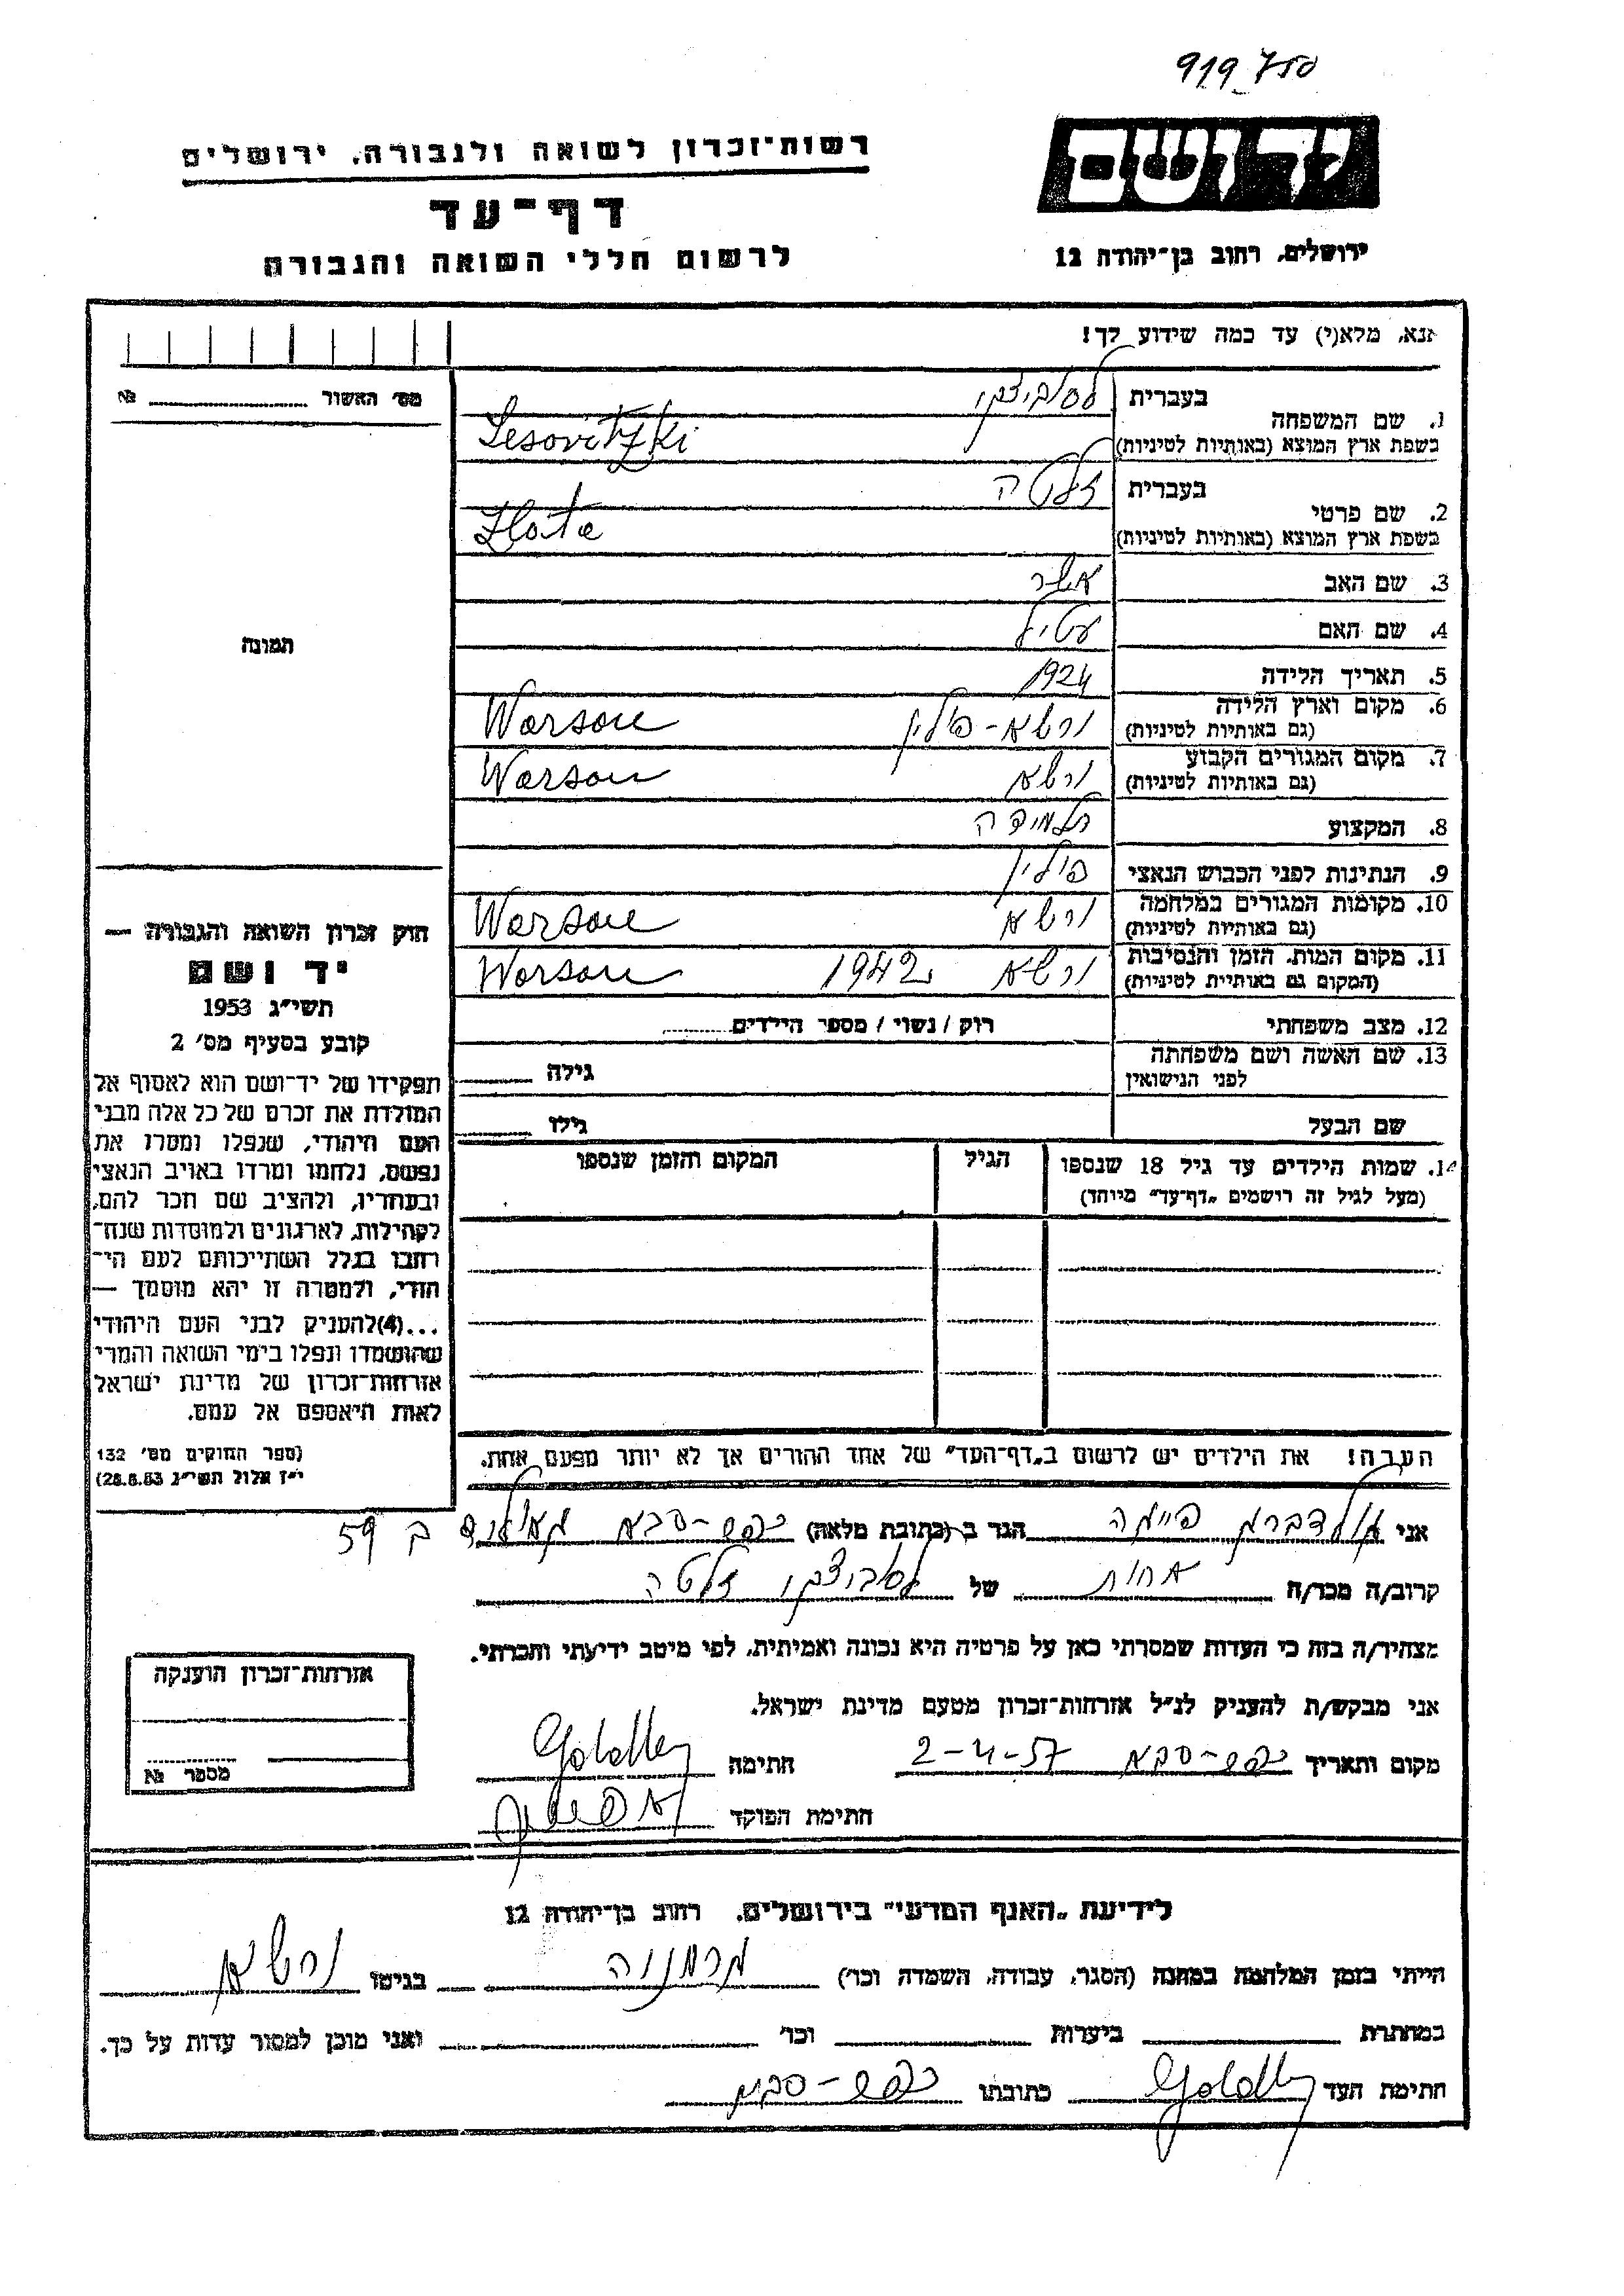 919 750
יד ושם
ירושלים, רחוב בן־יהודה 12
רשות־זכרון לשואה ולגבורה, ירושלים
דף־עד
לרשום חללי השואה והגבורה
אנא, מלא(י) עד כמה שידוע לך!
מס׳ האשור № 
1. שם המשפחה
בעברית לסוביצקי
בשפת ארץ המוצא (באותיות לטיניות) Lesovitzki
2. שם פרטי
בעברית זלטה
בשפת ארץ המוצא (באותיות לטיניות) Zlota
3. שם האב אשר
4. שם האם
5. תאריך הלידה 1924
6. מקום וארץ הלידה ורשא - פולין Warsou
(גם באותיות לטיניות)
7. מקום המגורים הקבוע ורשא Warsou
(גם באותיות לטיניות)
8. המקצוע תלמידה
9. הנתינות לפני הכבוש הנאצי פולין
10. מקומות המגורים במלחמה ורשא Warsou
(גם באותיות לטיניות)
11. מקום המות, הזמן והנסיבות ורשא 1942 Warsou
(המקום גם באותיית לטיניות)
12. מצב משפחתי רוק / נשוי / מספר הילדים
13. שם האשה ושם משפחתה
לפני הנישואין גילה
שם הבעל גילו
14. שמות הילדים עד גיל 18 שנספו הגיל המקום והזמן שנספו
(מעל לגיל זה רושמים „דף־עד״ מיוחד)
הערה! את הילדים יש לרשום ב„דף־העד״ של אחד ההורים אך לא יותר מפעם אחת.
תמונה
חוק זכרון השואה והגבורה —
יד ושם
תשי״ג 1953
קובע בסעיף מס׳ 2
תפקידו של יד־ושם הוא לאסוף אל
המולדת את זכרם של כל אלה מבני
העם היהודי, שנפלו ומסרו את
נפשם, נלחמו ומרדו באויב הנאצי
ובעוזריו, ולהציב שם וזכר להם,
לקהילות, לארגונים ולמוסדות שנח־
רבו בגלל השתייכותם לעם הי־
הודי, ולמטרה זו יהא מוסמך —
...(4)להעניק לבני העם היהודי
שהושמדו ונפלו בימי השואה והמרי
אזרחות־זכרון של מדינת ישראל
לאות היאספם אל עמם.
(ספר החוקים מס׳ 132
י״ז אלול תשי״ג 28.8.53)
אני גולדברג הגר ב (כתובת מלאה) כפר-סבא ב 59
קרוב/ה מכר/ה אחות של לסוביצקי זלטה
מצהיר/ה בזה כי העדות שמסרתי כאן על פרטיה היא נכונה ואמיתית, לפי מיטב ידיעתי והכרתי.
אני מבקש/ת להעניק לנ״ל אזרחות־זכרון מטעם מדינת ישראל.
מקום ותאריך כפר-סבא 2-4-57 חתימה
חתימת הפוקד
אזרחות־זכרון הוענקה
מספר №
לידיעת „האגף המדעי״ בירושלים, רחוב בן־יהודה 12
הייתי בזמן המלחמה במחנה (הסגר, עבודה, השמדה וכו׳) בגיטו ורשא
במחתרת ביערות וכו׳ ואני מוכן למסור עדות על כך.
חתימת העד כתובתו כפר-סבא